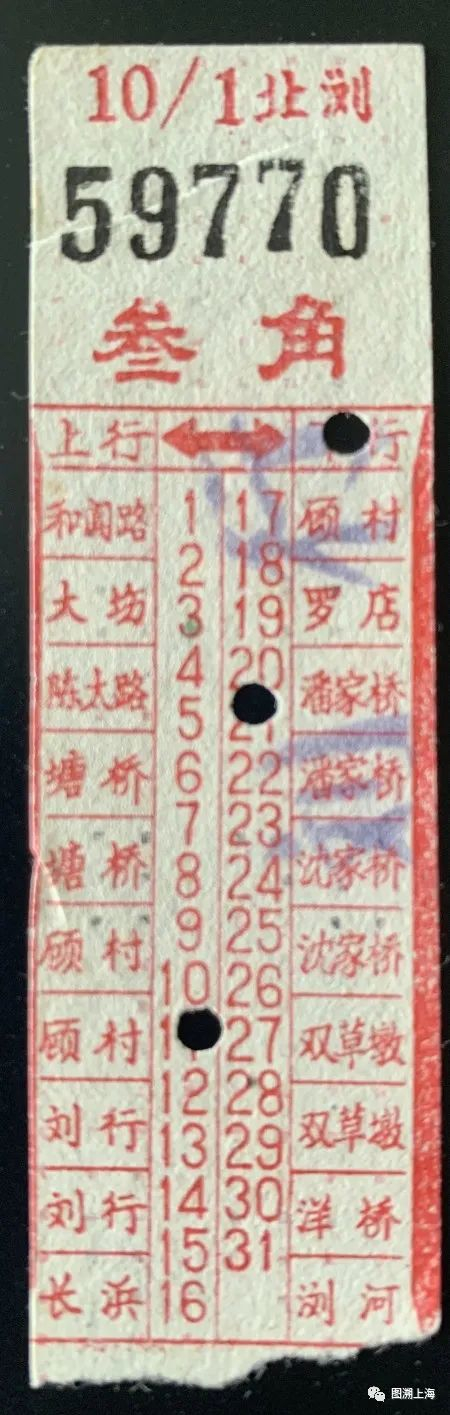 10/1北浏
59770
叁角
上行 行
大场
陈太路
塘桥
塘桥
顾村
顾村
刘行
刘行
长浜
1 17
2 18
3 19
4 20
5
6 22
7 23
8 24
9 25
10 26
27
12 28
13 29
14 30
15 31
16
顾村
罗店
潘家桥
潘家桥
沈家桥
沈家桥
双草墩
双草墩
洋桥
浏河
图溯上海